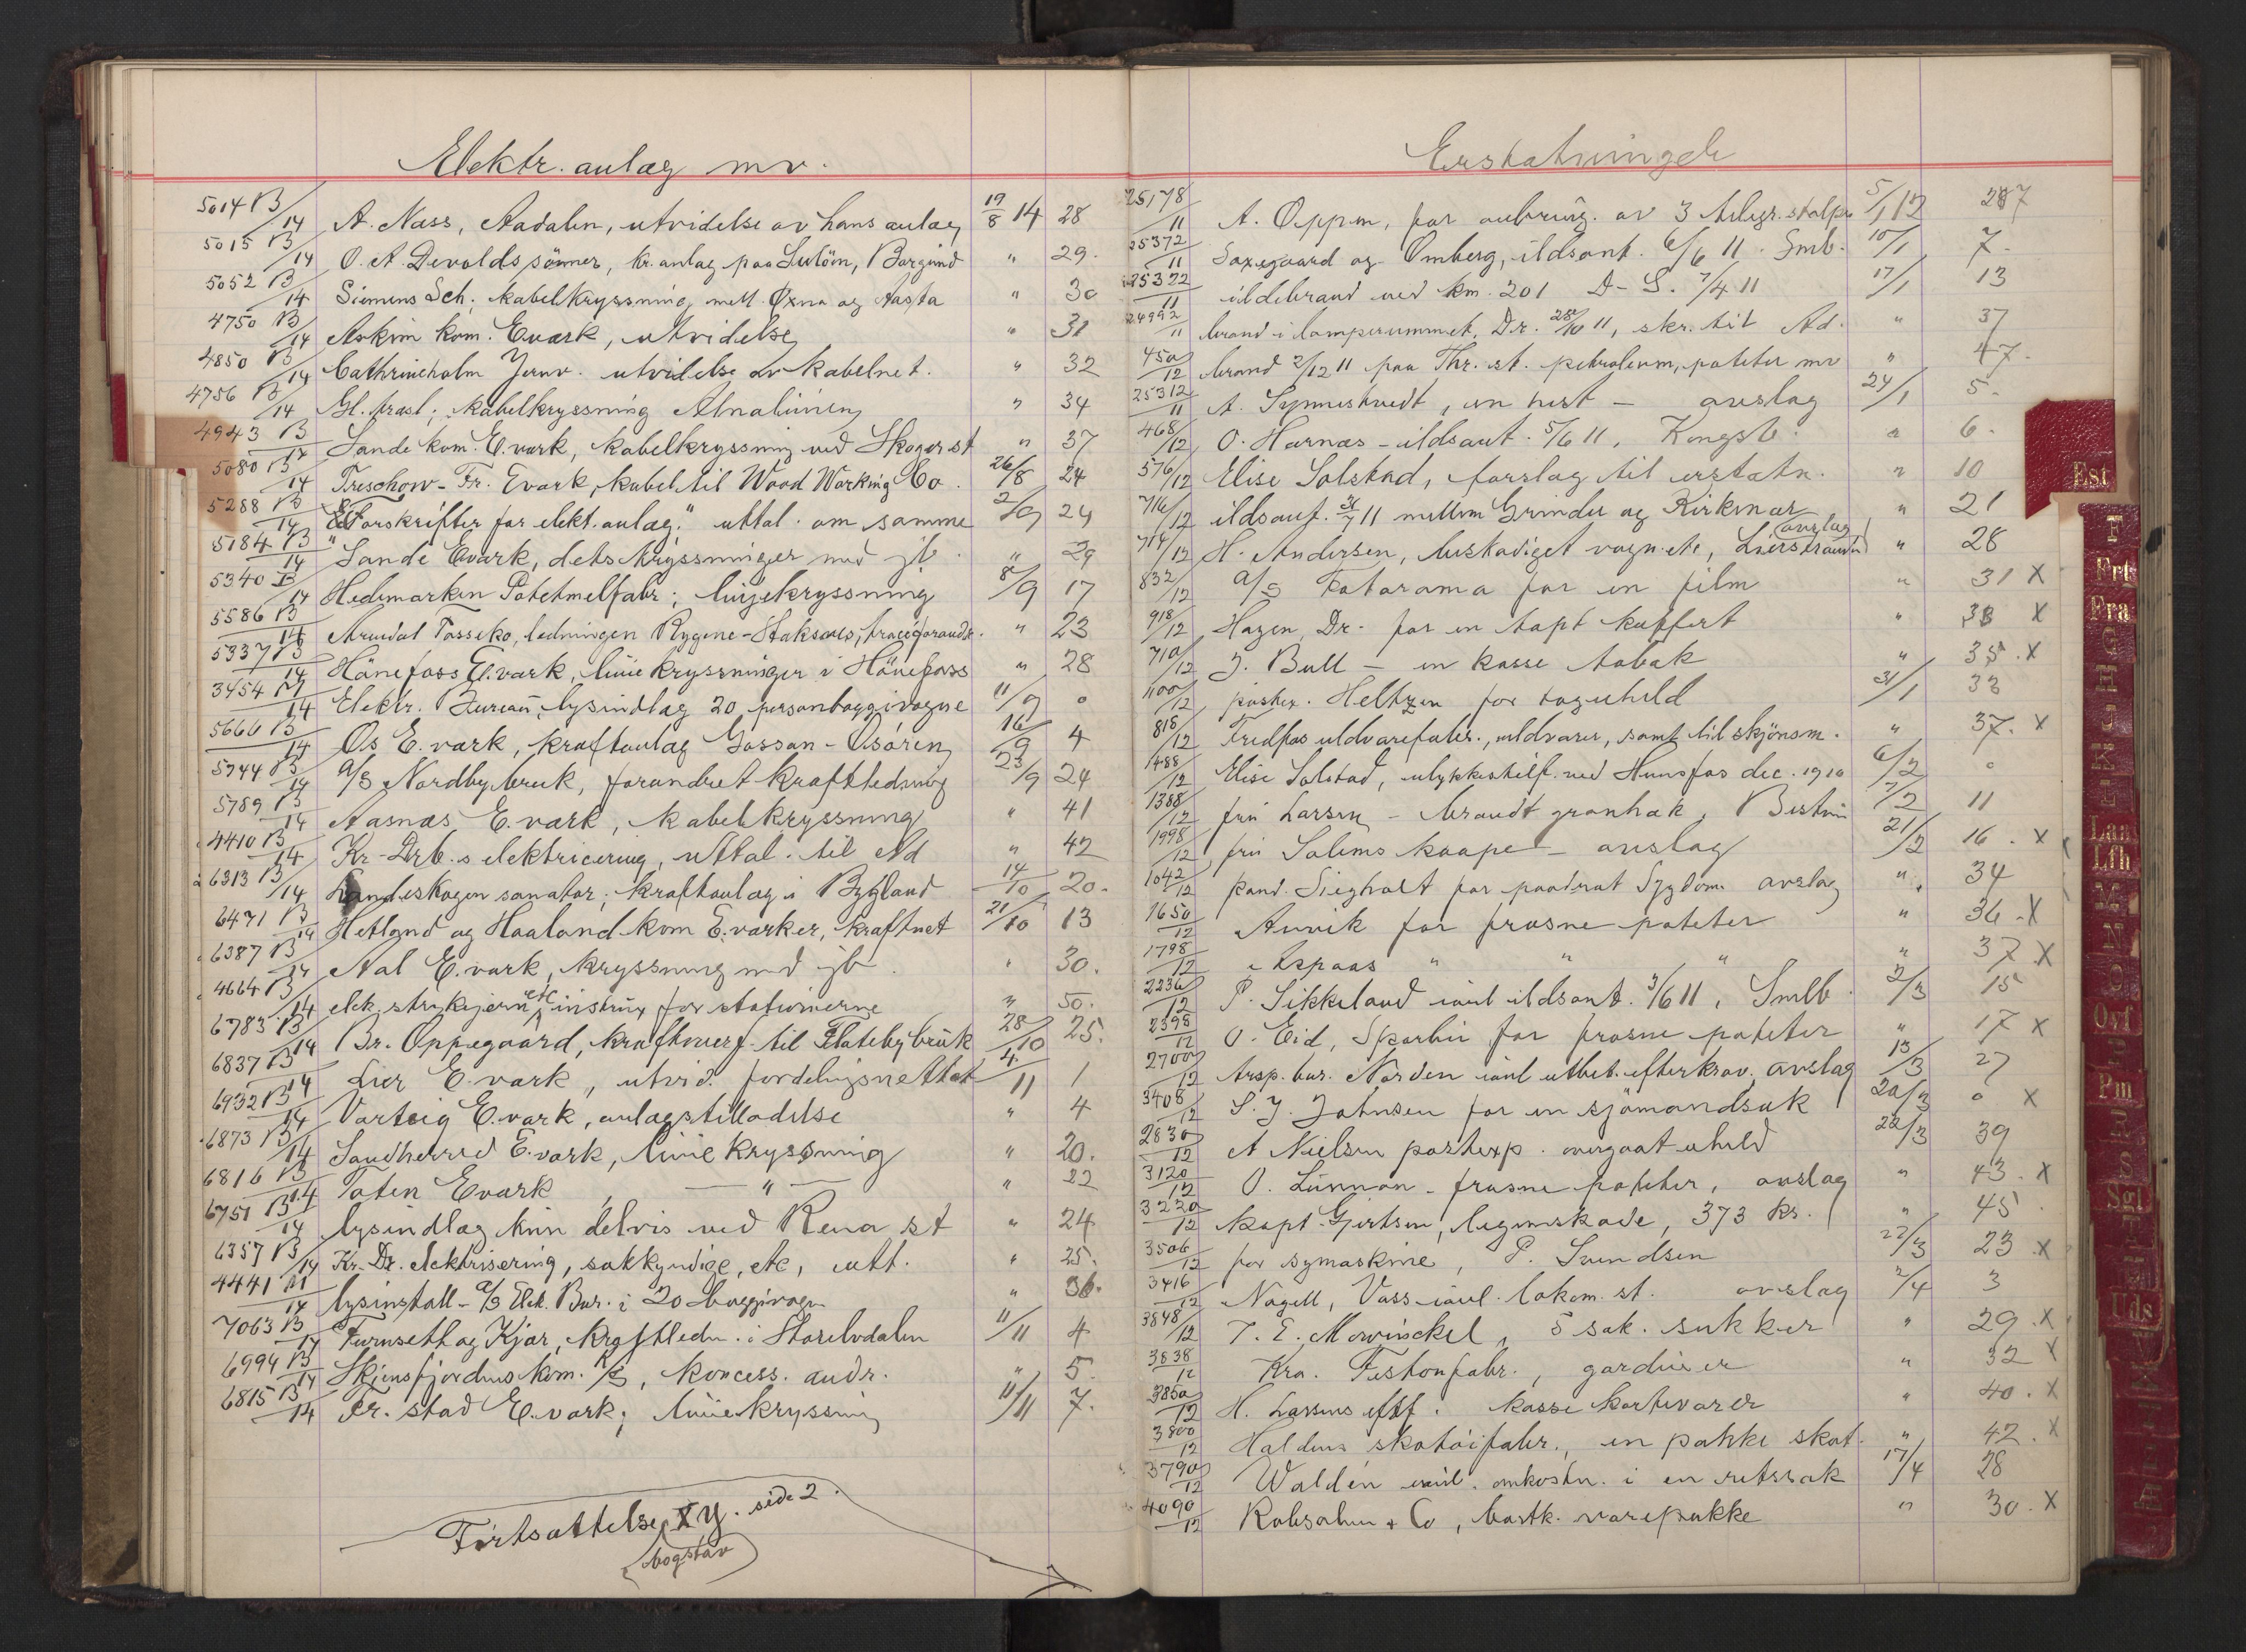 Elektr. anlæg mv.
5014 B/14 A. Næss, Aadalen, utvidelse av hans anlæg 19/8 14 28
5015 B/14 O. A. Devoldssønner, kr. anlæg paa Sulöen, Borgund " 29.
5052 B/14 Siemens Sch; kabelkryssning mell. Øxna og Aasta " 30
4750 B/14 Askim kom. Everk, utvidelse " 31
4850 B/14 Cathrineholm Jernv. utvidelse av kabelnet. " 32
4756 B/14 Gl. kabelkryssning Alnalinien " 34
4943 B/14 Sande kom. E.værk, kabelkryssning ved Skoger st " 37
5080 B/14 Treschow-Fr. Eværk, kabel til Wood Working Co. 26/8 24
5288 B/14 "Forskrifter for elekt. anlæg." uttal. om samme 2/9 24
5184 B/14 Sande Eværk, dets kryssninger med jb. " 29
5340 B/14 Hedemarken Potetmelfabr; linjekryssning 8/9 17
5586 B/14 Arendal Fosseko, ledningen Rygene-Staksnes, tracéforandr. " 23
5337 B/14 Hönefoss E.værk, liniekryssninger i Hönefoss " 28
3454 M/14 Elektr. Bureau, lysindlæg 20 personboggivogne 11/9 0
5666 B/14 Os E.værk, kraftanlæg Gåssan - Osøren 16/9 4
5744 B/14 A/S Nordby bruk, forandret kraftledning 23/9 24
5789 B/14 Aasnæs E.værk, kabelkryssning " 41
4410 B/14 Kr-Drb.s elektricering, uttal. til Ad " 42
6313 B/14 Landeskogen sanator; kraftanlæg i Bygland 14/10 20.
6471 B/14 Hetland og Haaland kom E.værker, kraftnet 21/10 13
6387 B/14 Aal E.værk, kryssning med jb. " 30.
4664 B/14 elek. strykejern etc instrux for stationerne " 50.
6783 B/14 Br. Oppegaard, kraftoverf. til Flateby bruk 28/10 25.
6837 B/14 Lier E.værk, utvid. fordelingsnettet 4/11 1
6932 B/14 Varteig E.værk, anlægstilladelse " 4
6873 B/14 Sandherred E.værk, liniekryssning " 20.
6816 B/14 Toten Eværk, — " — " 22
6751 B/14 lysindlæg kun delvis ved Rena st " 24
6357 B/14 Kr-Dr. elektrisering, sakkyndige, etc, utt. " 25.
4441 M/14 lysinstall - A/S Elek. Bur. i 20 boggivogn " 36.
7063 B/14 Furuseth og Kjær, kraftledn. i Storelvdalen 11/11 4
6994 B/14 Skiensfjordens kom. K/S, koncess. andr. " 5.
6815 B/14 Fr. stad E.værk; liniekryssning 11/11 7.
Fortsættelse, XY. side 2.
bogstav
Erstatninger
25178/11 A. Oppen, for anbring. av 3 telegr. stolper 5/1 12 27
25372/11 Saxegaard og Omberg, ildsant. 6/6 11. Smb. 10/1 7.
25322/11 ildebrand ved km. 201 D-S. 7/4 11 17/1 13
24992/11 brand i lamperummet, Dr. 28/10 11, skr. til Ad. " 37
450/12 brand 2/12 11 paa Thr. st. petroleum, poteter mv " 47.
25312/11 A. Synnestvedt, en hest — avslag 24/1 5.
468/12 O. Harnæs - ildsant. 5/6 11, Kongsb. " 6.
576/12 Elise Solstad, forslag til erstatn. " 10
716/12 ildsant. 31/7 11 mellem Grinder og Kirkenær " 21
714/12 H. Andersen, beskadiget vogn etc, Lierstranda avslag " 28
832/12 A/S Fotorama for en film " 31 X
918/12 Hagen, Dr. for en tapt kuffert " 33 X
710/12 J. Bull — en kasse tobak " 35. X
1100/12 postex. Heltzen for toguheld 31/1 33
818/12 Fredfos uldvarefabr., uldvarer, samt til skjönsm. " 37. X
1488/12 Elise Solstad, ulykkestilf. ved Hunsfos dec. 1910 6/2 0
1388/12 fru Larsen — brændt granhæk, Bestun 7/2 11
1998/12 fru Solems kaape — avslag 21/2 16. X
1042/12 kand. Siegholt for paadrat sygdom avslag " 34
1650/12 Anvik for frosne poteter " 36. X
1798/12 Aspaas " " " " 37 X
2236/12 P. Sikkeland ildsant. 3/6 11, Smlb. 2/3 15
2398/12 O. Eid, Skorbu for frosne poteter " 17 X
2700/12 Trsp. bur. Norden utbet. efterkrav. avslag 13/3 27
3408/12 S. J. Johnsen for en sjömandsæk 20/3 0 X
2830/12 A Nielsen postexp. overgaat uheld 22/3 39
3120/12 O. Lunnan - frosne poteter, avslag " 43. X
3220/12 kapt. Gjertsen, legemskade, 373 Kr. " 45
3506/12 for symaskine, P. Svendsen 22/3 23. X
3416/12 Nagell, Voss lokom. st. avslag 2/4 3
3848/12 T. E. Mowinckel, 5 sæk. sukker " 29. X
3838/12 Kra. Festonfabr., gardiner " 32 X
3850/12 H. Larsens eftf. kasse kortevarer " 40. X
3800/12 Haldens skotöifabr., en pakke skot. " 42. X
3790/12 Waldén omkostn. i en retssak 17/4 28
4090/12 Robsahm & Co, bortk. varepakke " 30. X
Est
F
Frts
Fra
G
H
J
K
L
Laa
Lfh
M
N
O
Ovf
P
Pm
R
S
Sgl
T
U
Uds